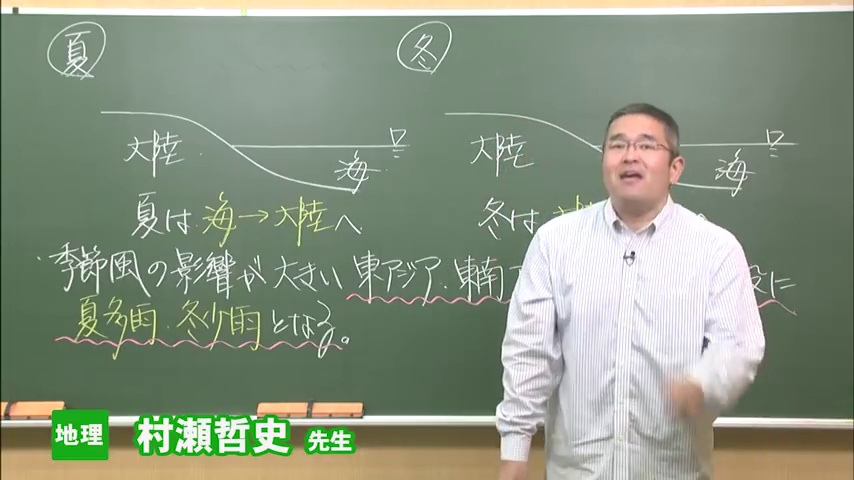 夏
冬
大陸
海
大陸
海
夏は 海→大陸へ
冬は
季節風の影響が大きい 東アジア・東南
に
夏多雨・冬少雨となる。
地理 村瀬哲史 先生